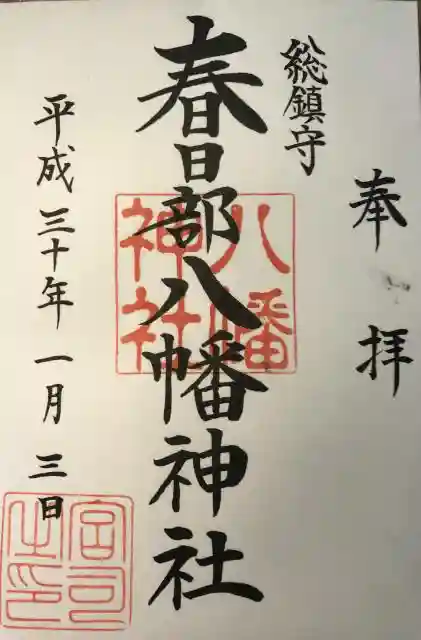 奉拝
総鎮守
春日部八幡神社
八幡神社
平成三十年一月三日
宮司之印